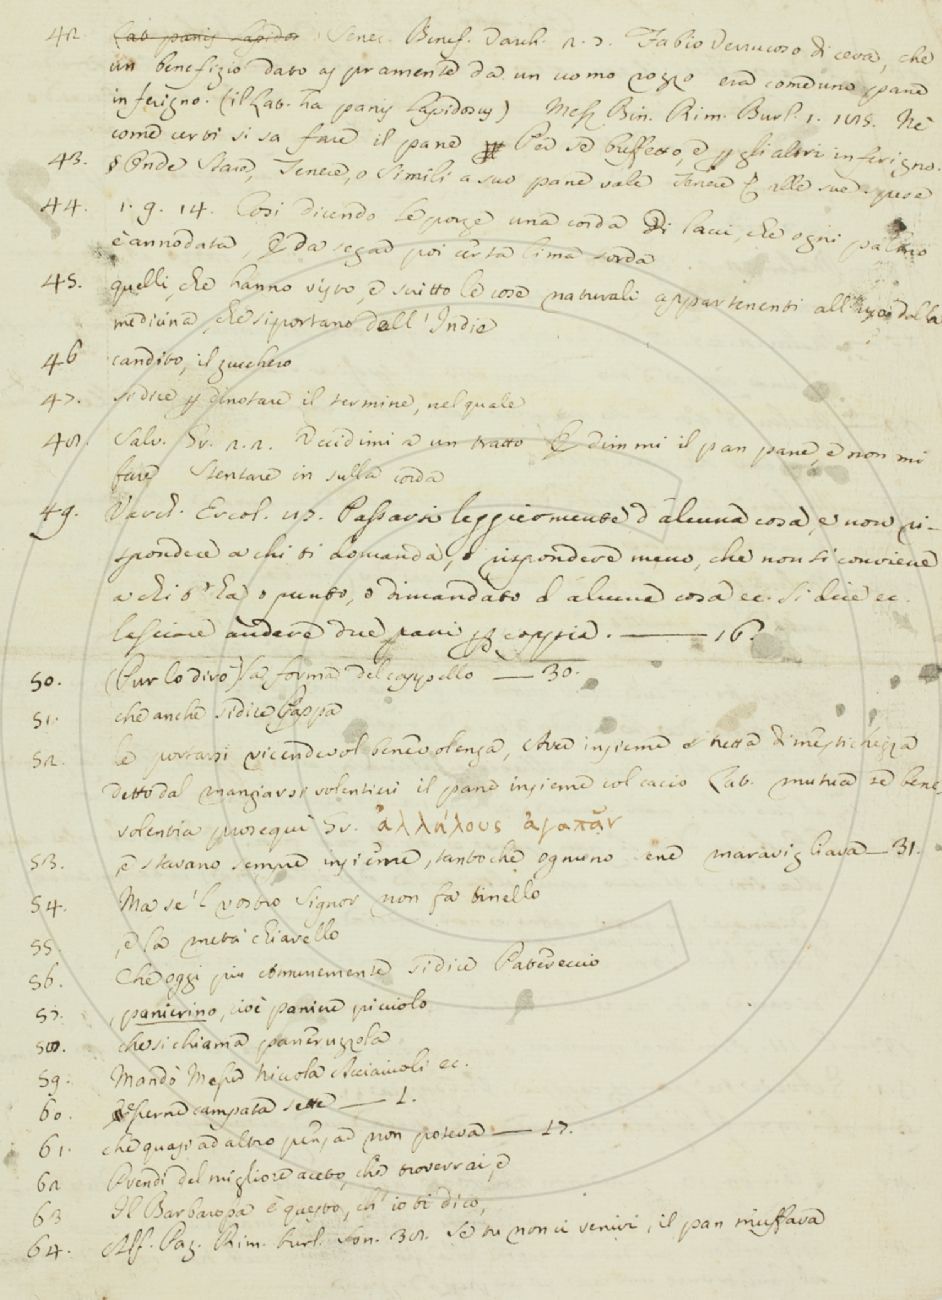 42. Lat. panis lapidos Senec. Benef. Varch. 2. 7. Fabio Verrucoso diceva, che
un benefizio dato aspramente da un uomo rozzo era come un pane
inferigno. (il Lat. ha panis lapidosus) Mess. Bin. Rim. Burl. 1. 218. Nè
come certi si sa fare il pane Per se buffetto, e p gli altri inferigno.
43. Onde Stare, Tenere, o Simili a suo pane vale Tenere alle sue spese
44. 1. 9. 14. Così dicendo le porge una corda Di lacci, che ogni palmo
è annodata, E da segar poi certa lima sorda
45. quelli, che hanno visto, e scritto le cose naturali appartenenti all' uso della
medicina, che si portano dall' Indie
46 candito, il zucchero
47. si dice p dinotare il termine, nel quale
48. Salv. Gr. 2. 2. Decidimi a un tratto E dimmi il pan pane, e non mi
fare Stentare in sulla corda
49. Varch. Ercol. 87. Passarsi leggiermente d'alcuna cosa, e non ri-
spondere a chi ti domanda, o rispondere meno, che non si conviene
a chi t'ha o punto, o dimandato d'alcuna cosa ec. si dice ec.
lasciare andare due pani p coppia. — 16.
50. (Pur lo dirò) la forma del cappello — 30.
51. che anche si dice Pappa
52. le portarsi vicendevol benevolenza, Aver insieme stretta dimestichezza
detto dal mangiarsi volentieri il pane insieme col cacio Lat. mutua se bene
volentia prosequi Gr. ἀλλήλους ἀγαπᾶν
53. e stavano sempre insieme, tanto che ognuno ene maravigliava — 31.
54. Ma se 'l vostro Signor non fa tinello
55. e la metà chiarello
56. Che oggi più comunemente si dice Patereccio
57. , panierino, cioè paniere picciolo
58. che si chiama paneruzzola
59. Mandò Messer Niccola Acciaiuoli ec.
60. perne campata sette — 1.
61. che quasi ad altro pensar non poteva — 17.
62 Prendi del migliore aceto, che troverrai, e
63 Il Barbaropa è questo, ch' io ti dico,
64. Alf. Paz. Rim. burl. son. 38. Se tu non ci venivi, il pan muffava